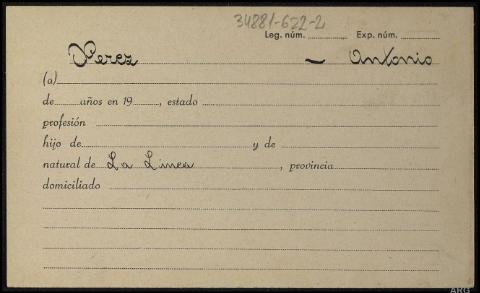 34881-622-2
Leg. núm. Exp. núm.
Perez - Antonio
(a)
de años en 19 , estado
profesión
hijo de y de
natural de La Linea , provincia
domiciliado
ARG